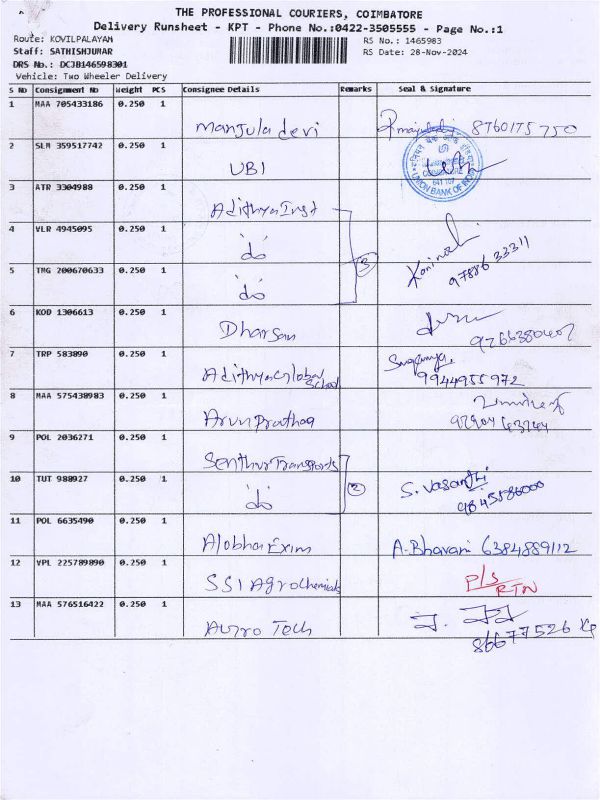 THE PROFESSIONAL COURIERS, COIMBATORE
Delivery Runsheet - KPT - Phone No.:0422-3505555 - Page No.:1
Route: KOVILPALAYAM
RS No.: 1465983
Staff: SATHISHJUMAR
RS Date: 28-Nov-2024
DRS No.: DCJB146598301
Vehicle: Two Wheeler Delivery
S No Consignment No Weight PCS Consignee Details Remarks Seal & Signature
1 MAA 705433186 0.250 1 Manjula devi 8760175750
2 SLM 359517742 0.250 1 UBI
UNION BANK OF INDIA
3 ATR 3304988 0.250 1 Adithya Inst
4 VLR 4945095 0.250 1 do
3
9788633311
5 TMG 200670633 0.250 1 do
6 KOD 1306613 0.250 1 Dharsan
7 TRP 583890 0.250 1 Adithya Global School
9944955972
8 MAA 575438983 0.250 1 Arun Prathap
9 POL 2036271 0.250 1 Senthur Transports
10 TUT 988927 0.250 1 do 2 S. Vasanthi
9845586000
11 POL 6635490 0.250 1 Alobha Exim A. Bhavani 6384889112
12 VPL 225789890 0.250 1 SSI Agrochemicals P/S
RTN
13 MAA 576516422 0.250 1 Auro Tech